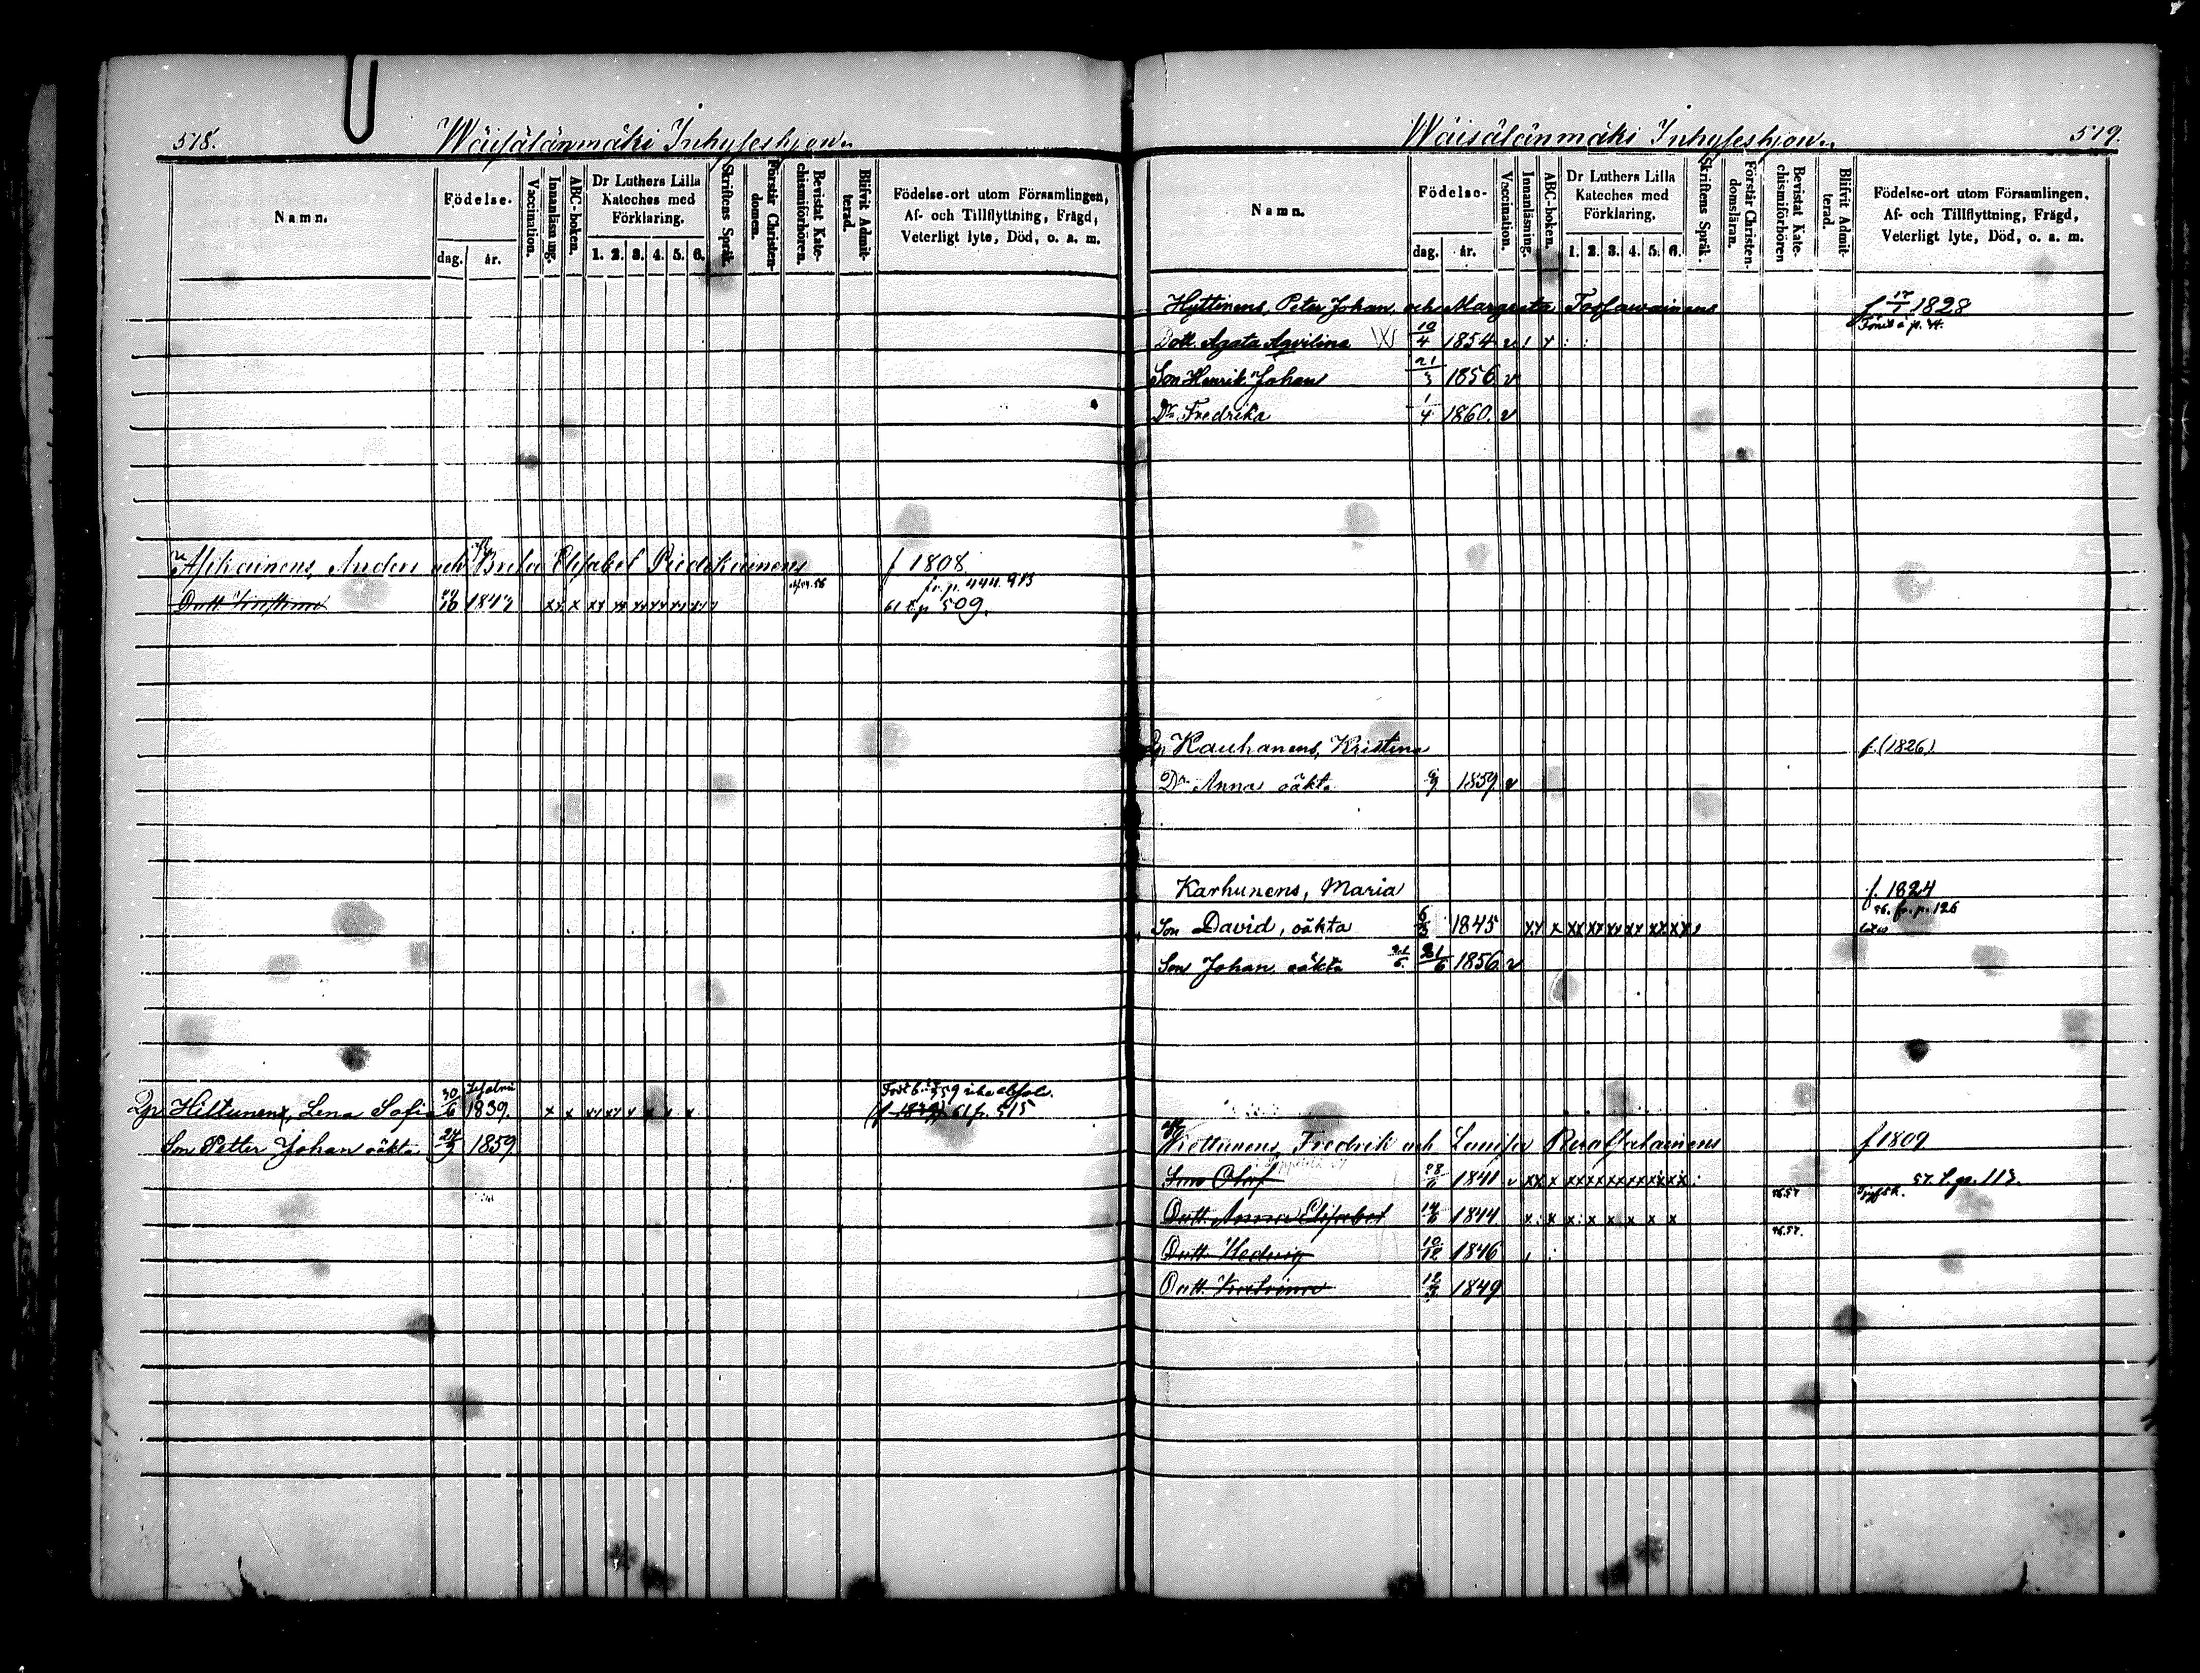 518.
Wäisälänmäki Inhyseshjon.
Namn.
Födelse.
dag.
år.
Vaccination.
Innanläsning.
ABC-boken.
Dr Luthers Lilla
Kateches med
Förklaring.
1. 2. 3. 4. 5. 6.
Skriftens Språk.
Förstår Christen-
domen.
Bevistat Kate-
chismiförhören.
Blifvit Admit-
terad.
Födelse-ort utom Församlingen,
Af- och Tillflyttning, Frägd,
Veterligt lyte, Död, o. a. m.
Asikainens, Anders och Brita Elisabet f 1808.
fr. p. 444. 
Dott 10 1843 x x x 61 t p 509.
Hiltunens, Lena Sofia 30/6 1839. x x 61 fr. 515
Son Petter Johan oäkta 24/3 1859
519.
Wäisälänmäki Inhyseshjon.
Namn.
Födelse-
dag.
år.
Vaccination.
Innanläsning.
ABC-boken.
Dr Luthers Lilla
Kateches med
Förklaring.
1. 2. 3. 4. 5. 6.
Skriftens Språk.
Förstår Christen-
domsläran.
Bevistat Kate-
chismiförhören
Blifvit Admit-
terad.
Födelse-ort utom Församlingen,
Af- och Tillflyttning, Frägd,
Veterligt lyte, Död, o. a. m.
Hyttinens, Peter Johan och Margreta Tossawainens f 17/7 1828
Dott. Agata Aqvilina 10/4 1854
Son Henrik Johan 21/3 1856 v
Dr Fredrika 1/4 1860. v
Kauhanens, Kristina f. (1826)
Dr Anna oäkta 9/9 1859 v
Karhunens, Maria f. 1824
56. fr. p. 126
Son David, oäkta 1845
Son Johan oäkta 21/6 21/6 1856 v
Fredrik och Lovisa f 1809
Son Olof 1841 57. t. p. 113.
Dott. Anna Elisabet 1844
Dott. Hedvig 10/12 1846
Dott. Katrina 1849